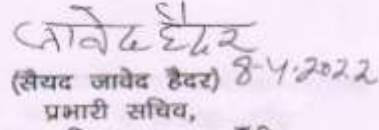 जावेद हैदर
(सैयद जावेद हैदर) 8-4-2022
प्रभारी सचिव,